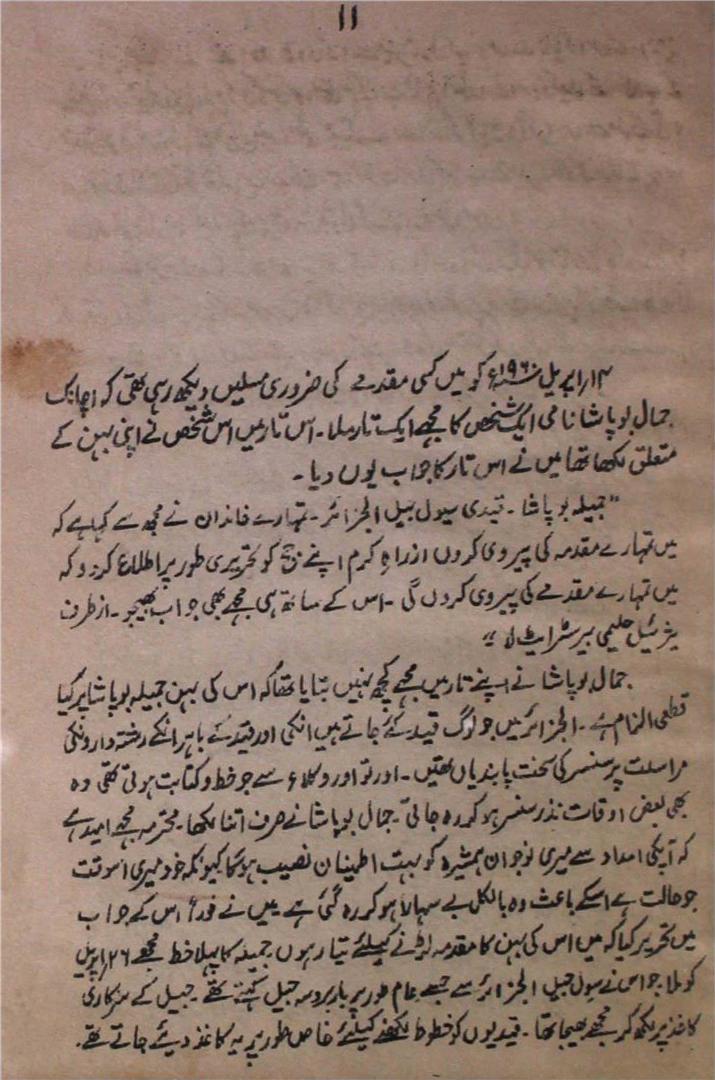 11
۱۴؍اپریل ۱۹۶۰ء کو میں کسی مقدمے کی ضروری مسلیں دیکھ رہی تھی کہ اچانک
جمال بوپاشا نامی ایک شخص کا مجھے ایک تار ملا۔ اس تار میں اس شخص نے اپنی بہن کے
متعلق لکھا تھا میں نے اس تار کا جواب یوں دیا۔
”جمیلہ بوپاشا۔ قیدی سیول جیل الجزائر۔ تمہارے خاندان نے مجھ سے کہا ہے کہ
میں تمہارے مقدمہ کی پیروی کروں ازراہِ کرم اپنے جج کو تحریری طور پر اطلاع کر دو کہ
میں تمہارے مقدمے کی پیروی کروں گی۔ اس کے ساتھ ہی مجھے بھی جواب بھیجو۔ از طرف
حلیمی بیرسٹر ایٹ لا“
جمال بوپاشا نے اپنے تار میں مجھے کچھ نہیں بتایا تھا کہ اس کی بہن جمیلہ بوپاشا پر کیا
قطعی الزام ہے۔ الجزائر میں جو لوگ قید کئے جاتے ہیں انکی اور قید کے باہر انکے رشتہ داروں کی
مراسلت پر سنسر کی سخت پابندیاں تھیں۔ اور تو اور وکلاء سے جو خط و کتابت ہوتی تھی وہ
بھی بعض اوقات نذر سنسر ہو کر رہ جاتی۔ جمال بوپاشا نے صرف اتنا لکھا۔ محترمہ مجھے امید ہے
کہ آپکی امداد سے میری نوجوان ہمشیرہ کو بہت اطمینان نصیب ہوگا کیونکہ خود میری اسوقت
جو حالت ہے اسکے باعث وہ بالکل بے سہارا ہو کر رہ گئی ہے۔ میں نے فوراً اس کے جواب
میں تحریر کیا کہ میں اس کی بہن کا مقدمہ لڑنے کیلئے تیار ہوں۔ جمیلہ کا پہلا خط مجھے ۲۶؍اپریل
کو ملا جو اس نے سیول جیل الجزائر سے جسے عام طور پر باربروسہ جیل کہتے تھے۔ جیل کے سرکاری
کاغذ پر لکھ کر مجھے بھیجا تھا۔ قیدیوں کو خطوط لکھنے کیلئے خاص طور پر یہ کاغذ دیئے جاتے تھے۔